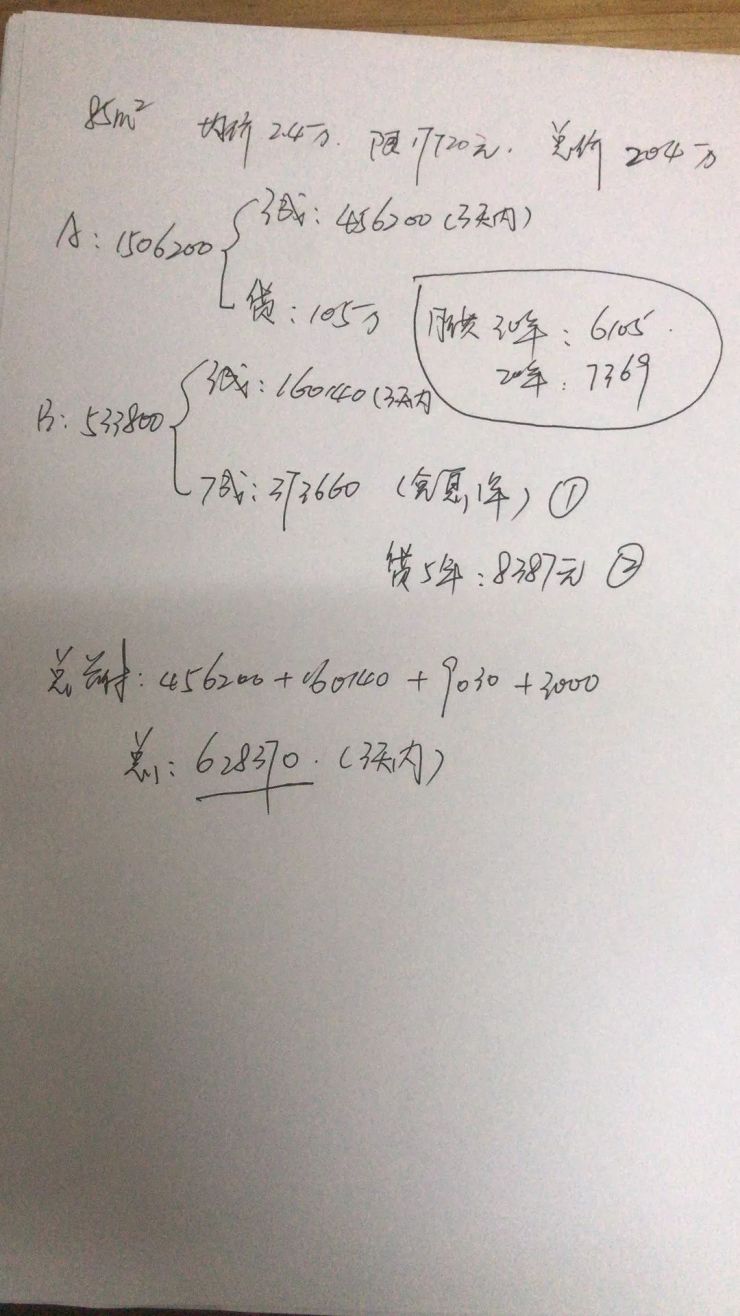 85m² 均价 2.4万. 限17720元. 总价 204万
A: 1506200
3成: 456200 (3天内)
贷: 105万
月供 30年: 6105.
20年: 7369
B: 533800
3成: 160140 (3天内
7成: 373660 (免息1年) ①
贷5年: 8387元 ②
总首付: 456200 + 160140 + 9030 + 3000
总: 628370. (3天内)